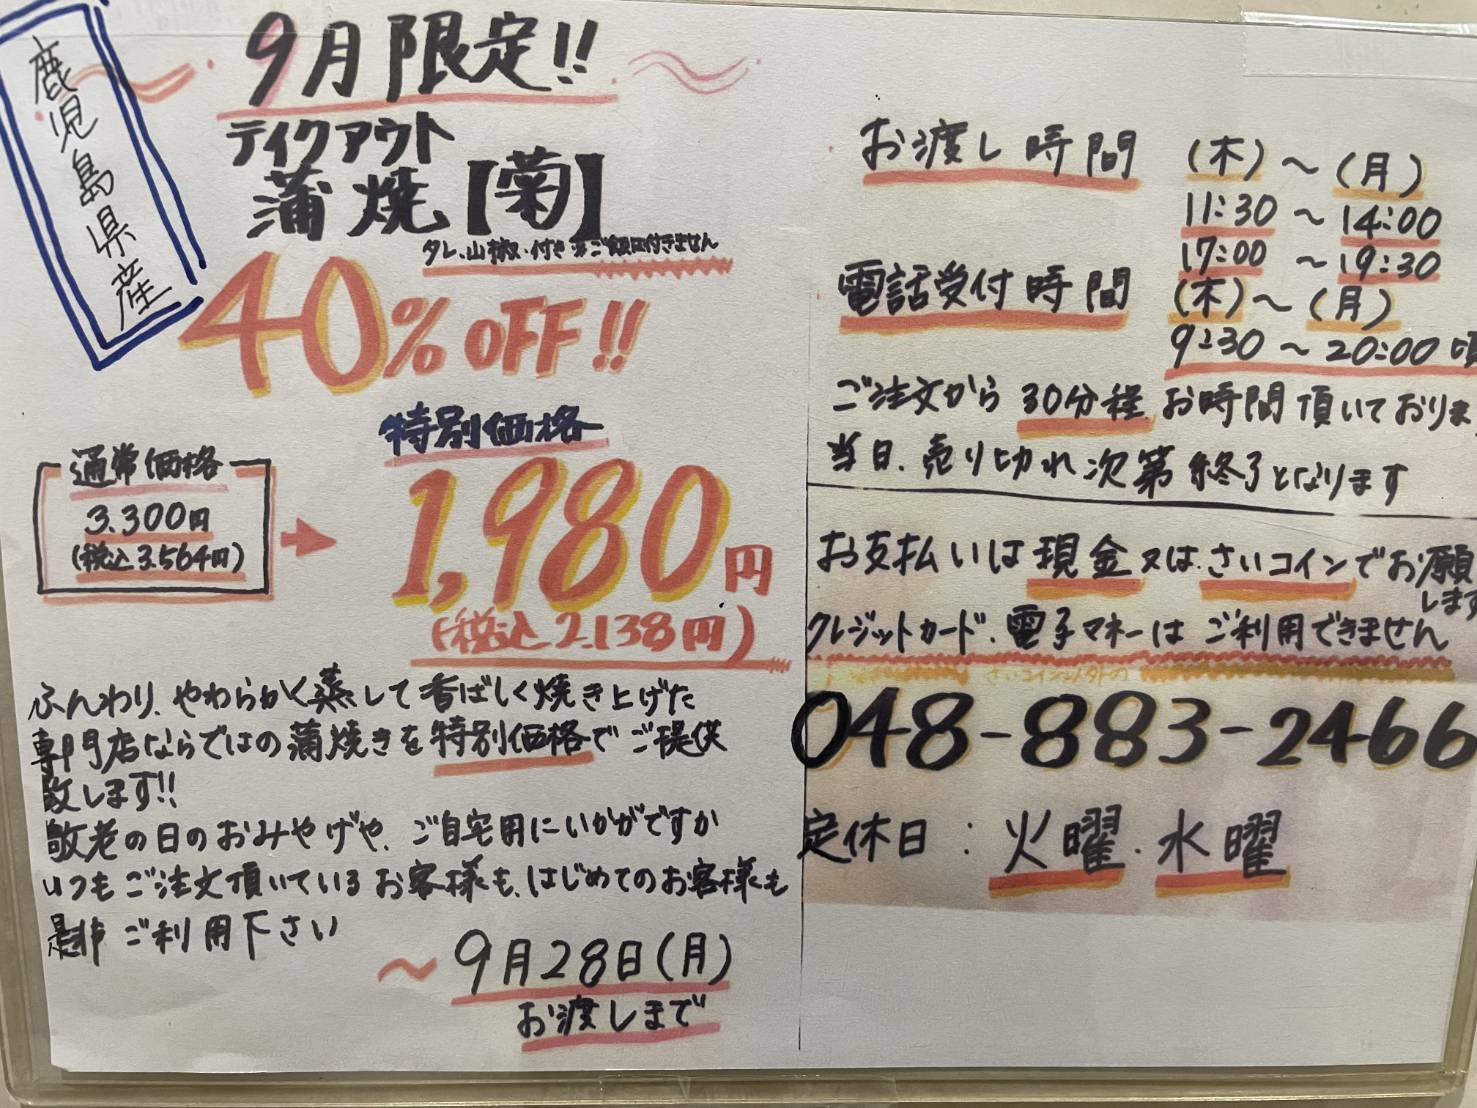 鹿児島県産
9月限定!!
テイクアウト
蒲焼【菊】
タレ・山椒・付き ※ご飯は付きません
40% OFF!!
特別価格
通常価格
3,300円
(税込3,564円)
1,980円
(税込2,138円)
ふんわり、やわらかく蒸して香ばしく焼き上げた
専門店ならではの蒲焼きを特別価格でご提供
致します!!
敬老の日のおみやげや、ご自宅用にいかがですか
いつもご注文頂いているお客様も、はじめてのお客様も
是非ご利用下さい
〜9月28日(月)
お渡しまで
お渡し時間 (木)〜(月)
11:30〜14:00
17:00〜19:30
電話受付時間 (木)〜(月)
9:30〜20:00頃
ご注文から30分程お時間頂いておりま
当日、売り切れ次第終了となります
お支払いは現金又はさいコインでお願
します
クレジットカード、電子マネーはご利用できません
さいコイン以外の
048-883-2466
定休日：火曜、水曜